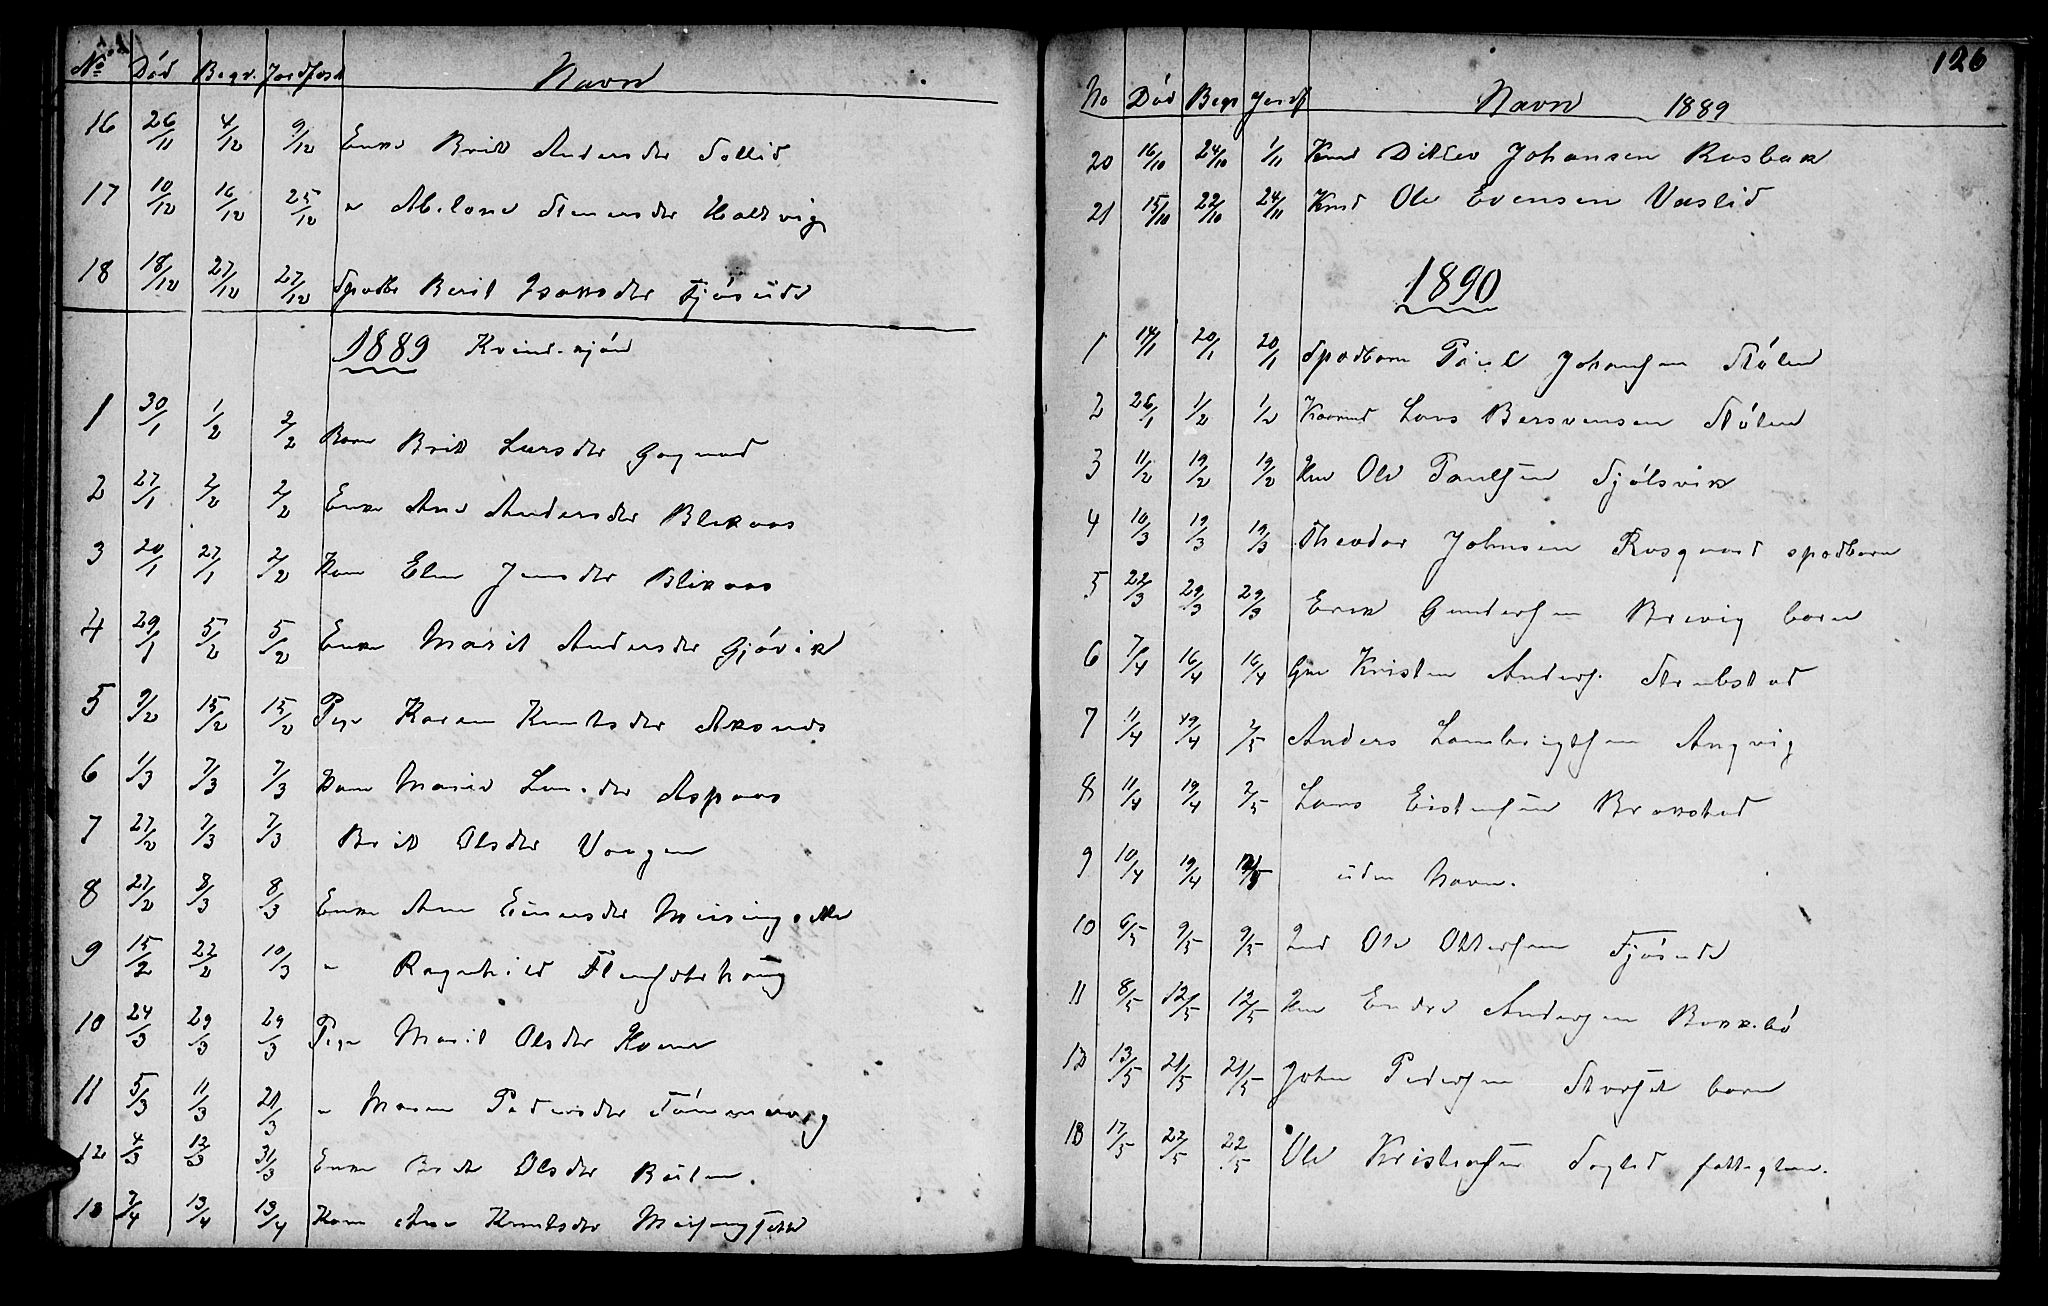 No Død Begr. Jordfæst Navn
16 26/11 4/12 9/12 Enke Britt Andersdtr Sollid
17 10/12 16/12 25/12 " Abelone Haltvig
18 18/12 27/12 27/12 Spædbr Beret Isaksdtr Fjøseide
1889 Kvindekjøn
1 30/1 1/2 2/2 Barn Britt Larsdtr Gagnad
2 27/1 2/2 2/2 Enke Ane Andersdtr Blikaas
3 20/1 27/1 2/2 Kone Elen Jensdtr Blikaas
4 29/1 5/2 5/2 Enke Marit Andersdtr Gjøvik
5 9/2 15/2 15/2 Pige Karen Knutsdtr Aksnes
6 1/3 7/3 7/3 Kone Marie Larsdtr Aspaas
7 27/2 7/3 7/3 Britt Olsdtr Vaagen
8 27/2 8/3 8/3 Enke Ane Einarsdtr Meisingsetr
9 15/2 22/2 10/3 " Ragnhild Flemsæterhaug
10 24/3 29/3 29/3 Pige Marit Olsdtr
11 5/3 11/3 21/3 " Maren Pedersdtr Tømmervåg
12 4/3 12/3 31/3 Enke Brit Olsdtr
13 7/4 13/4 13/4 Kone Ane Knutsdtr Meisingsetr
126
No Død Begr Jordf Navn 1889
20 16/10 24/10 1/11 Kmd Ditlev Johansen Rosbak
21 15/10 22/10 24/11 Kmd Ole Evensen Vaslid
1890
1 14/1 20/1 20/1 Spædbarn Paul Johansen Stølen
2 26/1 1/2 1/2 Kaarmd Lars Bersvensen Stølen
3 11/2 19/2 19/2 Km Ole Paulsen Sjølsvik
4 10/3 19/3 19/3 Theodor Johnsen Rosgaard spædbarn
5 22/3 29/3 29/3 Erik Gundersen Brevig barn
6 7/4 16/4 16/4 Gm Kristen Anders. Strebstad
7 11/4 19/4 2/5 Anders Lambrigtsen Angvig
8 11/4 19/4 2/5 Lars Eistensen Brakstad
9 10/4 19/4 uden Navn.
10 6/5 9/5 9/5 Ind Ole Ottersen Fjøseide
11 8/5 12/5 12/5 Km Endre Andersen
12 13/5 21/5 21/5 John Pedersen Storset barn
13 17/5 22/5 22/5 Ole Kristofsen Soglid fattiglem.